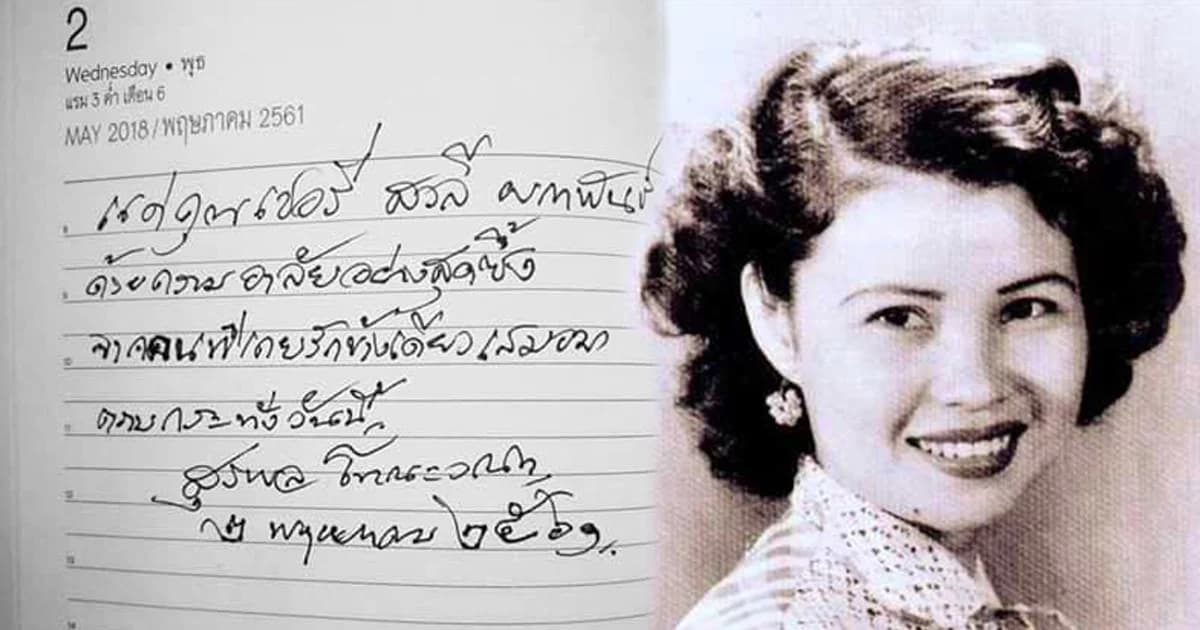 2
Wednesday • พุธ
แรม 3 ค่ำ เดือน 6
MAY 2018 / พฤษภาคม 2561
แด่คุณเชอรี่ สวลี ผกาพันธุ์
ด้วยความอาลัยอย่างสุดซึ้ง
จากคนที่เคยรักข้างเดียวเสมอมา
ตราบกระทั่งวันนี้
สุรพล โทณะวณิก
๒ พฤษภาคม ๒๕๖๑
8
9
10
11
12
13
14